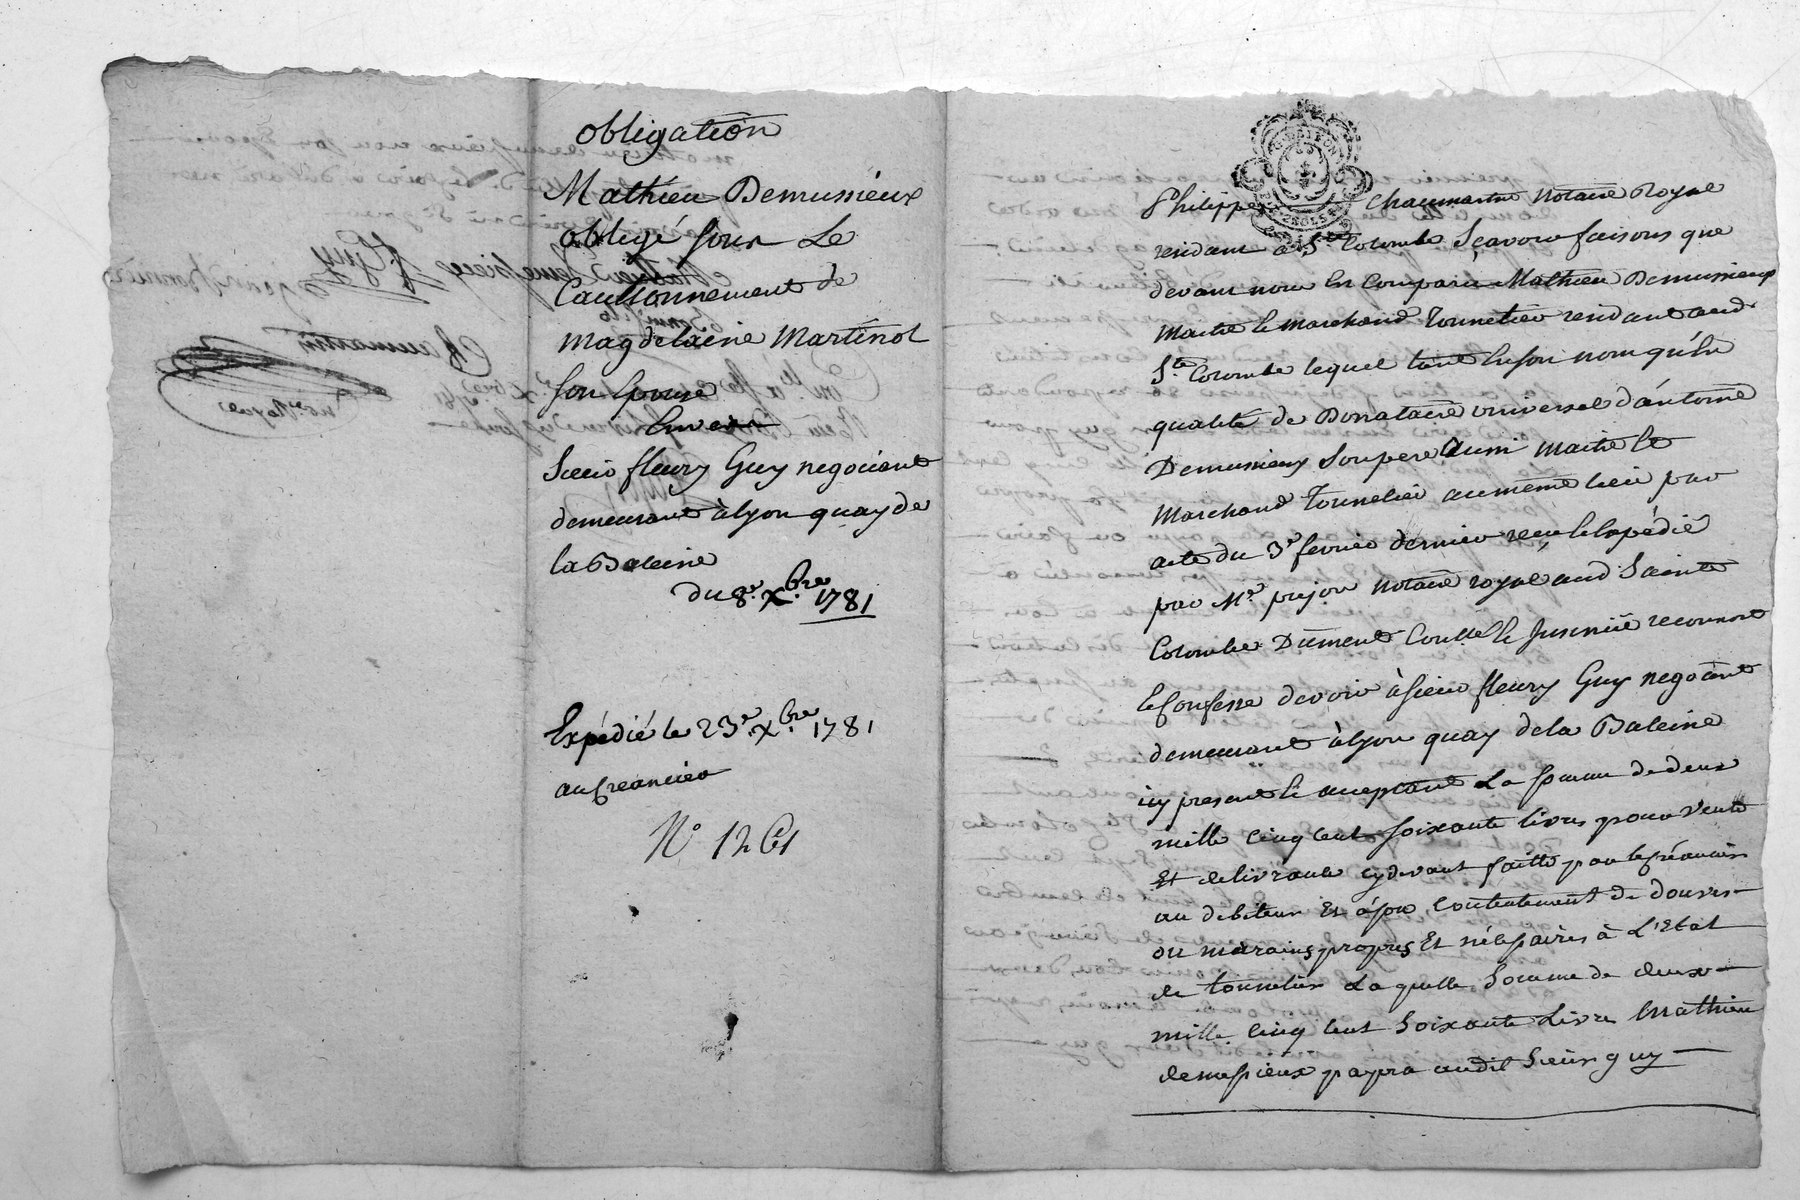 obligation
Mathieu Demussieux
obligé sous Le
Cautionnement de
magdelaine Martinot
son Epouse
Envers
Sieur fleury Guy negociant
demeurant à lyon quay de
la Baleine
du 8e. Xbre. 1781
Expédié le 23e. Xbre. 1781
au Creancier
N° 1261
Philippe Chaumartin Notaire Royal
residant à Ste Colombe Scavoir faisons que
devant nous En Comparu Mathieu Demussieux
Maitre Et marchand Tonnelier residant aud
Ste Colombe lequel tant En son nom qu'En
qualité de Donataire universel d'antoine
Demussieux Son pere, aussi Maitre Et
Marchand Tonnelier au même lieu par
acte du 3e fevrier dernier recu Et Expédié
par Me prejou Notaire royal aud Sainte
Colombe Dument Contllé Et Jnsinüé reconnoit
Et Confesse devoir à Sieur fleury Guy negotiant
demeurant à lyon quay de la Baleine
icy present Et acceptant La somme de deux
mille Cinq Cent soixante livres pour Vente
Et delivrance cy devant faitte par le Créancier
au debiteur Et à son Contentement de douves
ou marains propres Et nécessaires à L'Etat
de tonnelier La quelle Somme de deux
mille Cinq Cent Soixante Livres Mathieu
demussieux payera audit Sieur guy